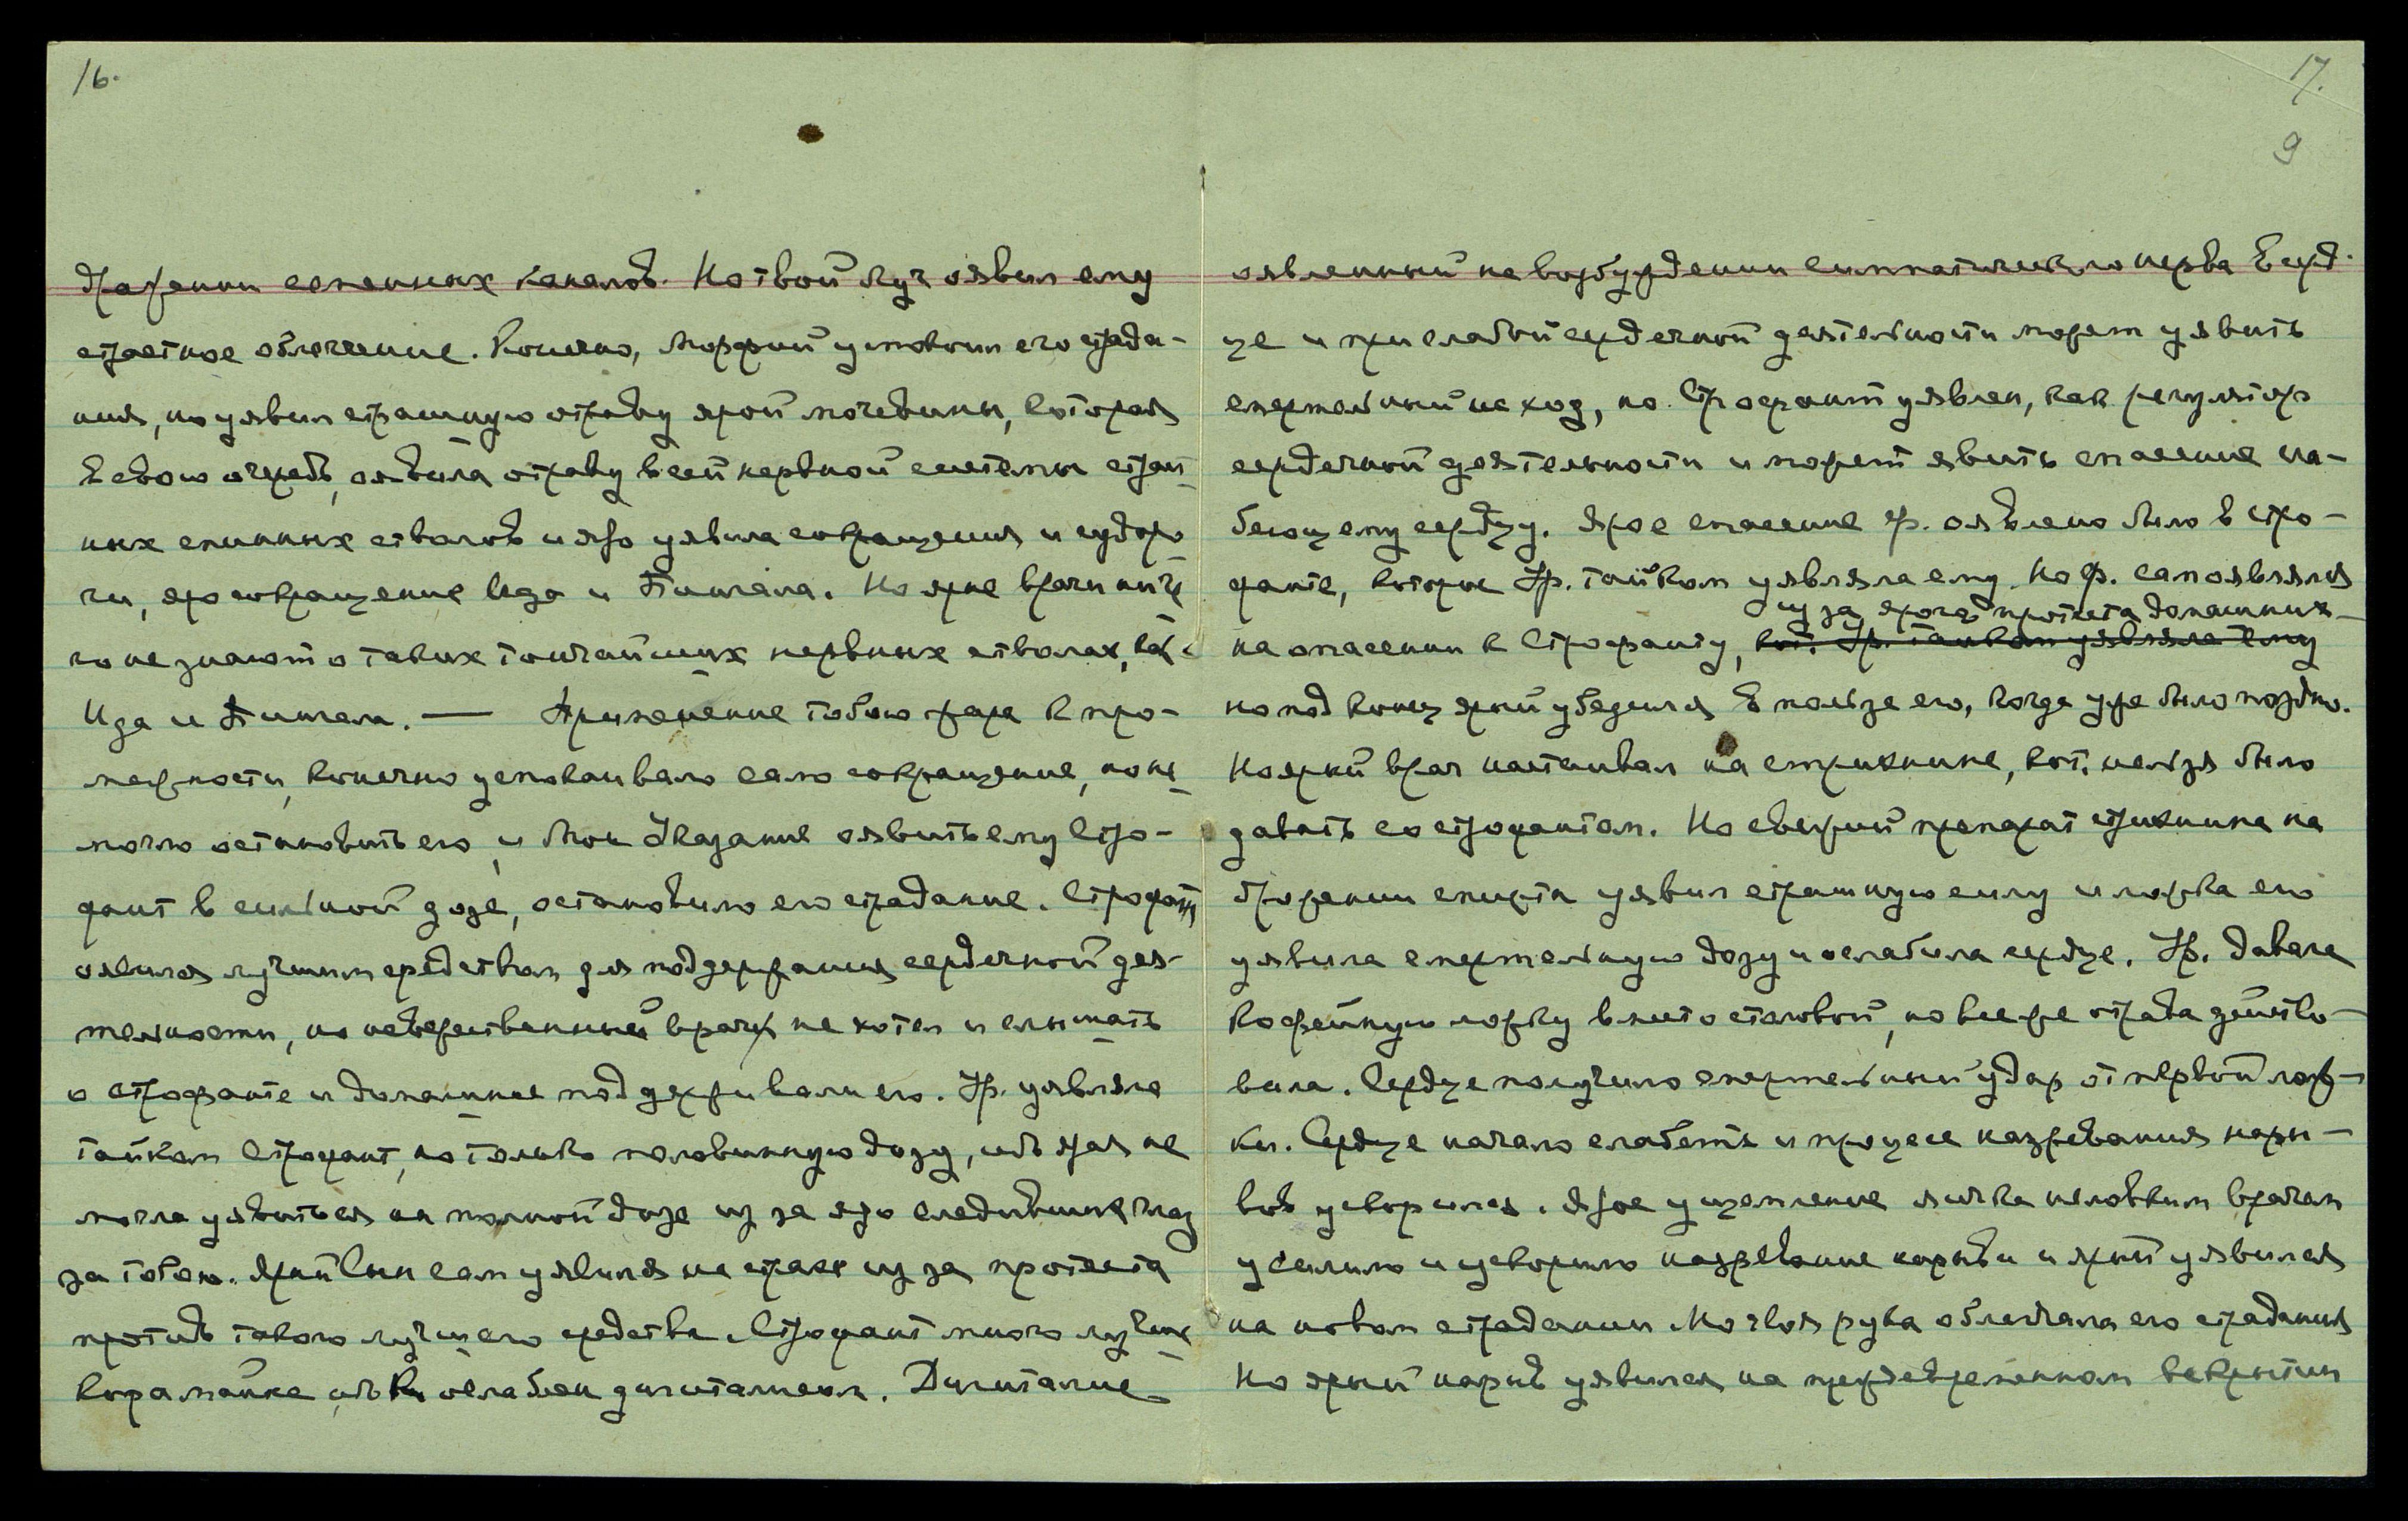 16.
дражении семенных каналов. Но твой Луч оявил ему
страстное облегчение. Конечно, Морфий успокоил его страда-
ния, но уявил страшную отраву ярой мочевины, которая
в свою очередь, оявила отраву всей нервной системы
ных спинных стволов и яро уявила сокращения и судоро-
ги, яро сокращение Ида и Пингала. Но ярые врачи ниче-
го не знают о таких тончайших нервных стволах, как
Ида и Пингала. — Применение тобою также к про-
межности, конечно успокаивало само сокращение, но не
могло остановить его, и Мое Указание оявить ему Стро-
фант в сильной дозе, остановило его страдание. Строфант
оявился лучшим средством для поддержания сердечной дея-
тельности, но невежественный врач не хотел и слышать
о строфанте и домашние поддерживали его. Ур. уявляла
тайком Строфант, но только половинную дозу, ибо ярая не
могла уявиться на полной дозе из за яро следивших глаз
за тобою. Ярый Сын сам уявился на страхе из за протеста
против такого лучшего средства. Строфант много лучше
Корамина, ибо он ослаблен дигиталисом. Дигиталис
17.
9
оявленный на возбуждении симпатического нерва в серд-
це и при слабой сердечной деятельности может уявить
смертельный исход, но Строфант уявлен, как регулятор
сердечной деятельности и может явить спасение сла-
беющему сердцу. Ярое спасение Ф. оявлено было в стро-
фанте, которые Ур. тайком уявляла ему. Но Ф. сам оявлялся
из за ярого протеста домашних
на опасении к Строфанту, кот. Ур. тайком уявляла ему
но под конец ярый убедился в пользе его, когда уже было поздно.
Но ярый врач настаивал на стрихнине, кот. нельзя было
давать со строфантом. Но свежий препарат стрихнина на
брожении спирта уявил страшную силу и ложка его
уявила смертельную дозу и ослабила сердце. Ур. давала
кофейную ложку вместо столовой, но все же отрава действо-
вала. Сердце получило смертельный удар от первой лож-
ки. Сердце начало слабеть и процесс назревания нары-
вов ускорился. Ярое ущемление яичка неловким врачом
усилило и ускорило назревание нарыва и ярый уявился
на новом страдании. Но твоя рука облегчала его страдания
Но ярый нарыв уявился на преждевременном вскрытии